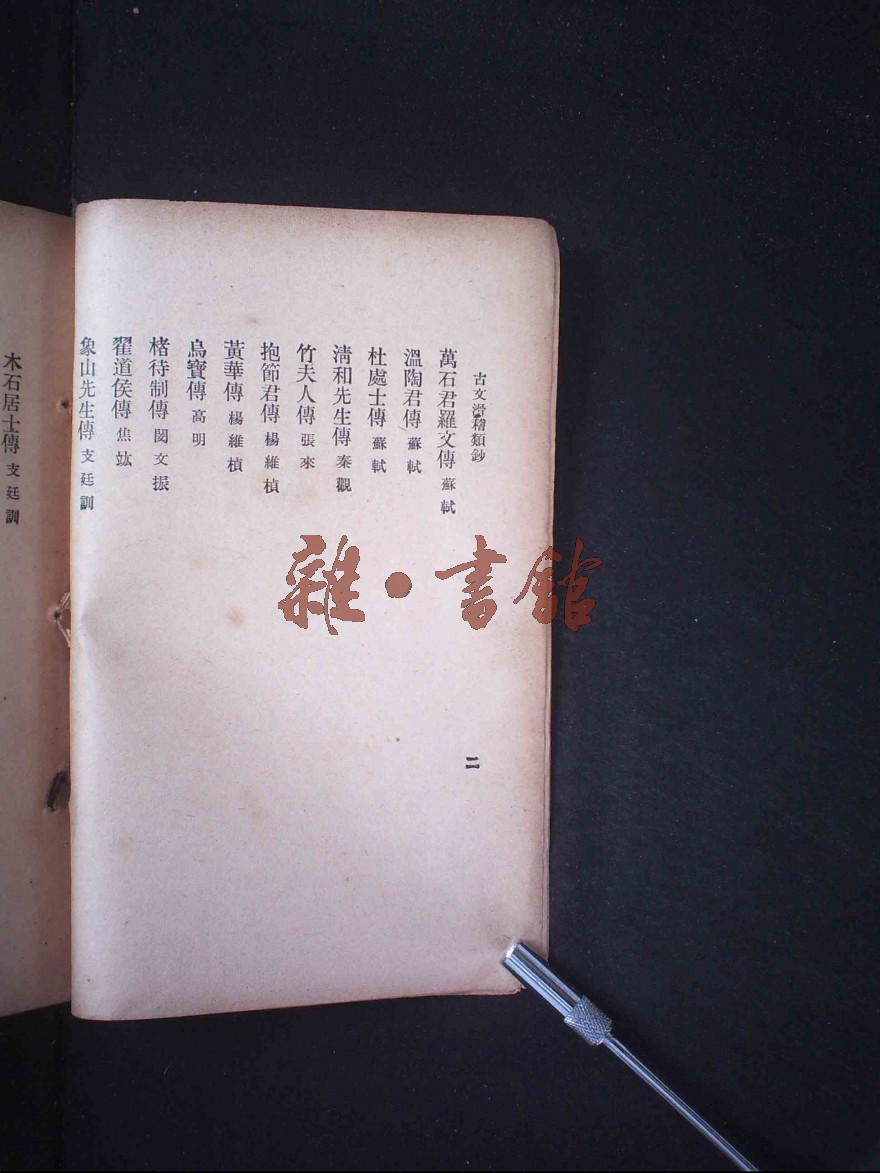 古文滑稽類鈔
萬石君羅文傳 蘇軾
溫陶君傳 蘇軾
杜處士傳 蘇軾
清和先生傳 秦觀
竹夫人傳 張來
抱節君傳 楊維楨
黃華傳 楊維楨
烏寶傳 高明
楮待制傳 閔文振
翟道侯傳 焦竑
象山先生傳 支廷訓
二
木石居士傳 支廷訓
雜·書館